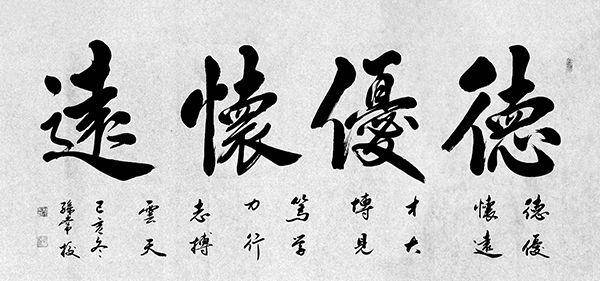 德優懷遠
德優
懷遠
才大
博見
篤学
力行
志搏
雲天
己亥冬